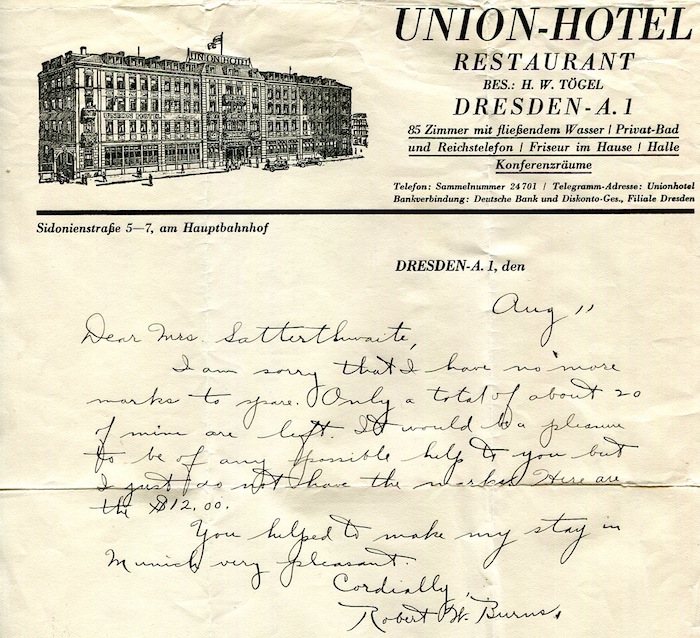 UNION-HOTEL
RESTAURANT
BES.: H. W. TÖGEL
DRESDEN-A. 1
85 Zimmer mit fließendem Wasser | Privat-Bad
und Reichstelefon | Friseur im Hause | Halle
Konferenzräume
Telefon: Sammelnummer 24701 / Telegramm-Adresse: Unionhotel
Bankverbindung: Deutsche Bank und Diskonto-Ges., Filiale Dresden
UNION HOTEL
UNION HOTEL
Sidonienstraße 5—7, am Hauptbahnhof
DRESDEN-A. 1, den
Aug 11
Dear Mrs. Satterthwaite,
I am sorry that I have no more
marks to spare. Only a total of about 20
of mine are left. It would be a pleasure
to be of any possible help to you but
I just do not have the marks. Here are
the $12.00.
You helped to make my stay in
Munich very pleasant.
Cordially,
Robert W. Burns.